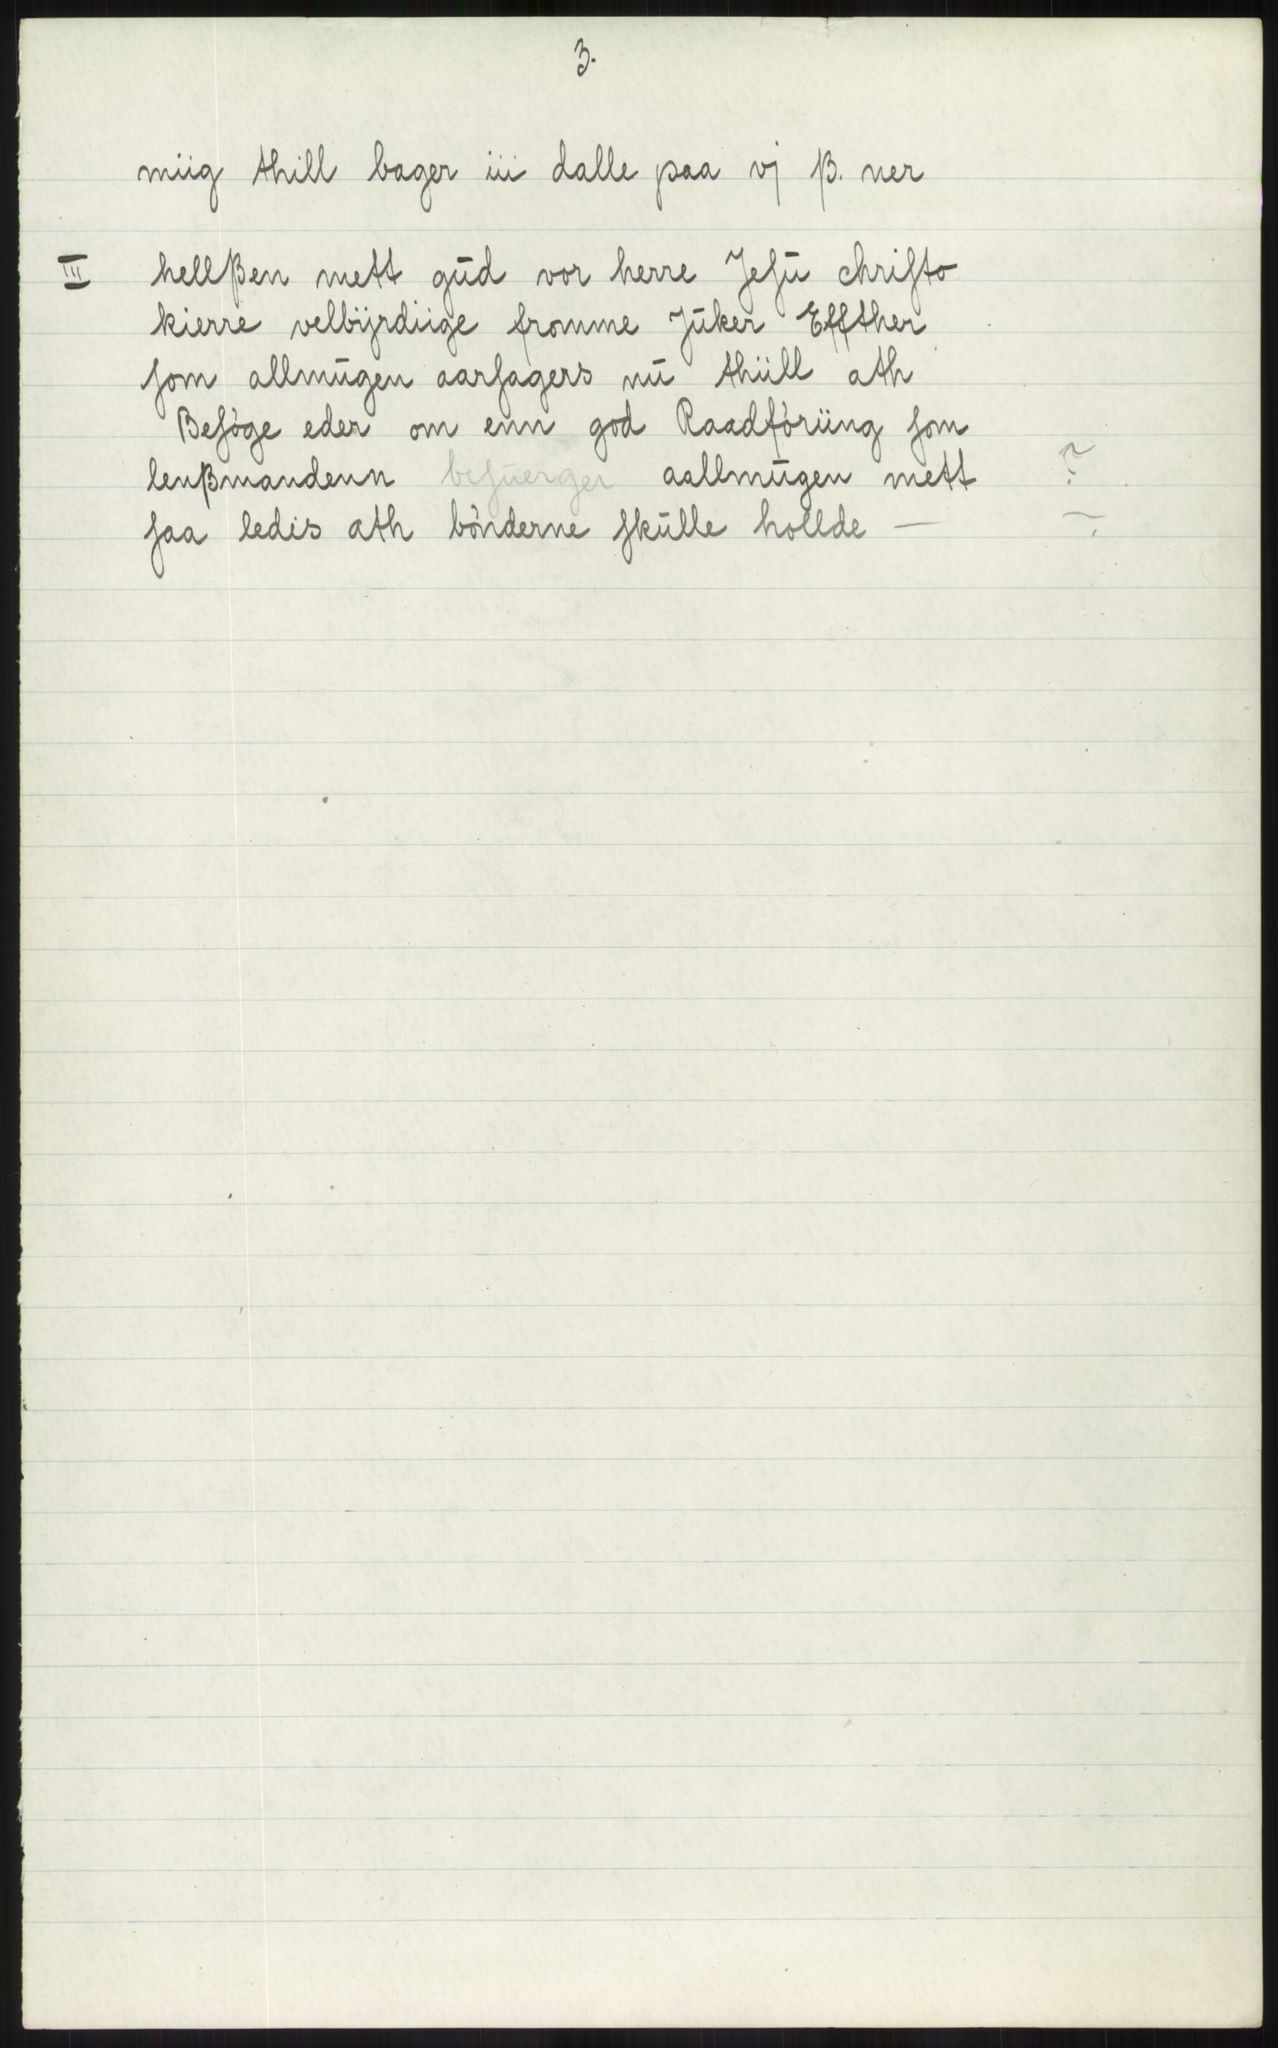 3.
miig thill bager iii dalle paa vj β. ner
III hellβen mett gūd vor herre Jeſū chriſto
kierre velbÿrdiige fromme Jūker Effther
ſom allmūgen aarſagers nū thiill ath
Beſøge eder om enn god Raadføriing ſom
lenβmandenn beſuerger aallmūgen mett ?
ſaa ledis ath bønderne ſkūlle hollde —